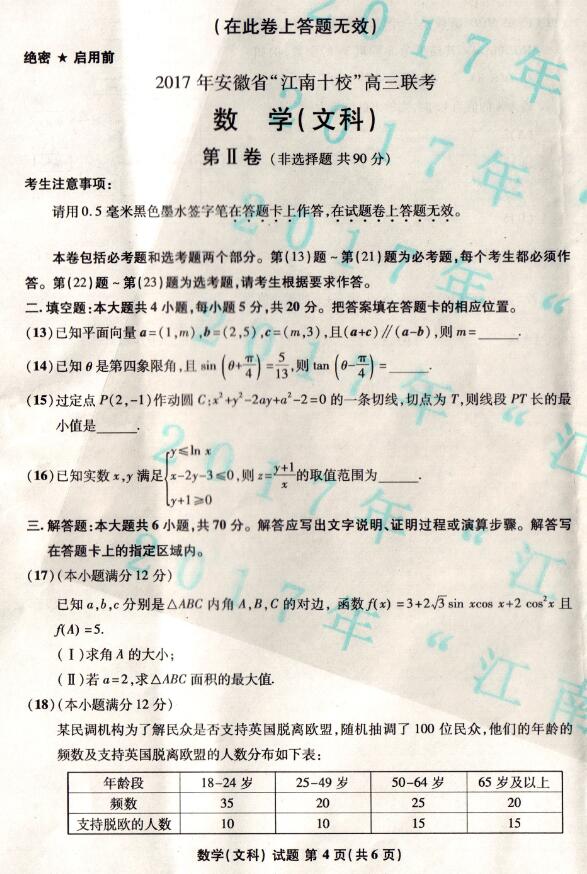 (在此卷上答题无效)
绝密 ★ 启用前
2017 年安徽省“江南十校”高三联考
数 学(文科)
第Ⅱ卷 (非选择题 共 90 分)
考生注意事项:
请用 0.5 毫米黑色墨水签字笔在答题卡上作答,在试题卷上答题无效。
本卷包括必考题和选考题两个部分。第(13)题~第(21)题为必考题,每个考生都必须作
答。第(22)题~第(23)题为选考题,请考生根据要求作答。
二.填空题:本大题共 4 小题,每小题 5 分,共 20 分。把答案填在答题卡的相应位置。
(13)已知平面向量 a=(1,m),b=(2,5),c=(m,3),且(a+c)∥(a-b),则 m=______.
(14)已知 θ 是第四象限角,且 sin(θ+π/4)=5/13,则 tan(θ-π/4)=______.
(15)过定点 P(2,-1)作动圆 C:x²+y²-2ay+a²-2=0 的一条切线,切点为 T,则线段 PT 长的最
小值是______.
(16)已知实数 x,y 满足{y≤ln x
x-2y-3≤0,则 z=(y+1)/x 的取值范围为______.
y+1≥0
三.解答题:本大题共 6 小题,共 70 分。解答应写出文字说明、证明过程或演算步骤。解答写
在答题卡上的指定区域内。
(17)(本小题满分 12 分)
已知 a,b,c 分别是△ABC 内角 A,B,C 的对边, 函数 f(x) =3+2√3 sin xcos x+2 cos²x 且
f(A) =5.
(Ⅰ)求角 A 的大小;
(Ⅱ)若 a=2,求△ABC 面积的最大值.
(18)(本小题满分 12 分)
某民调机构为了解民众是否支持英国脱离欧盟,随机抽调了 100 位民众,他们的年龄的
频数及支持英国脱离欧盟的人数分布如下表:
年龄段 18-24 岁 25-49 岁 50-64 岁 65 岁及以上
频数 35 20 25 20
支持脱欧的人数 10 10 15 15
数学(文科) 试题 第 4 页(共 6 页)
2017年
2017年
2017年“
2017年“江
2017年“江
2017年“江南